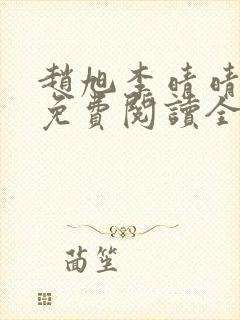 趙旭李晴晴
免費閱讀全
茵笙